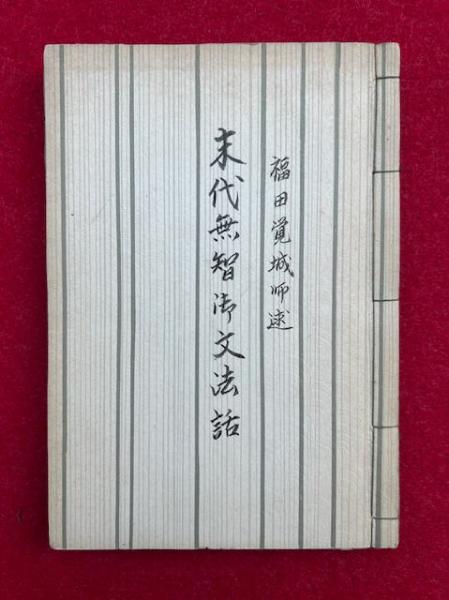 福田覚城師述
末代無智御文法話